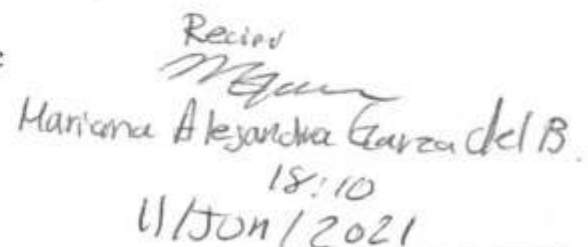 Recibí
Mariana Alejandra Garza del B.
18:10
11/Jun/2021